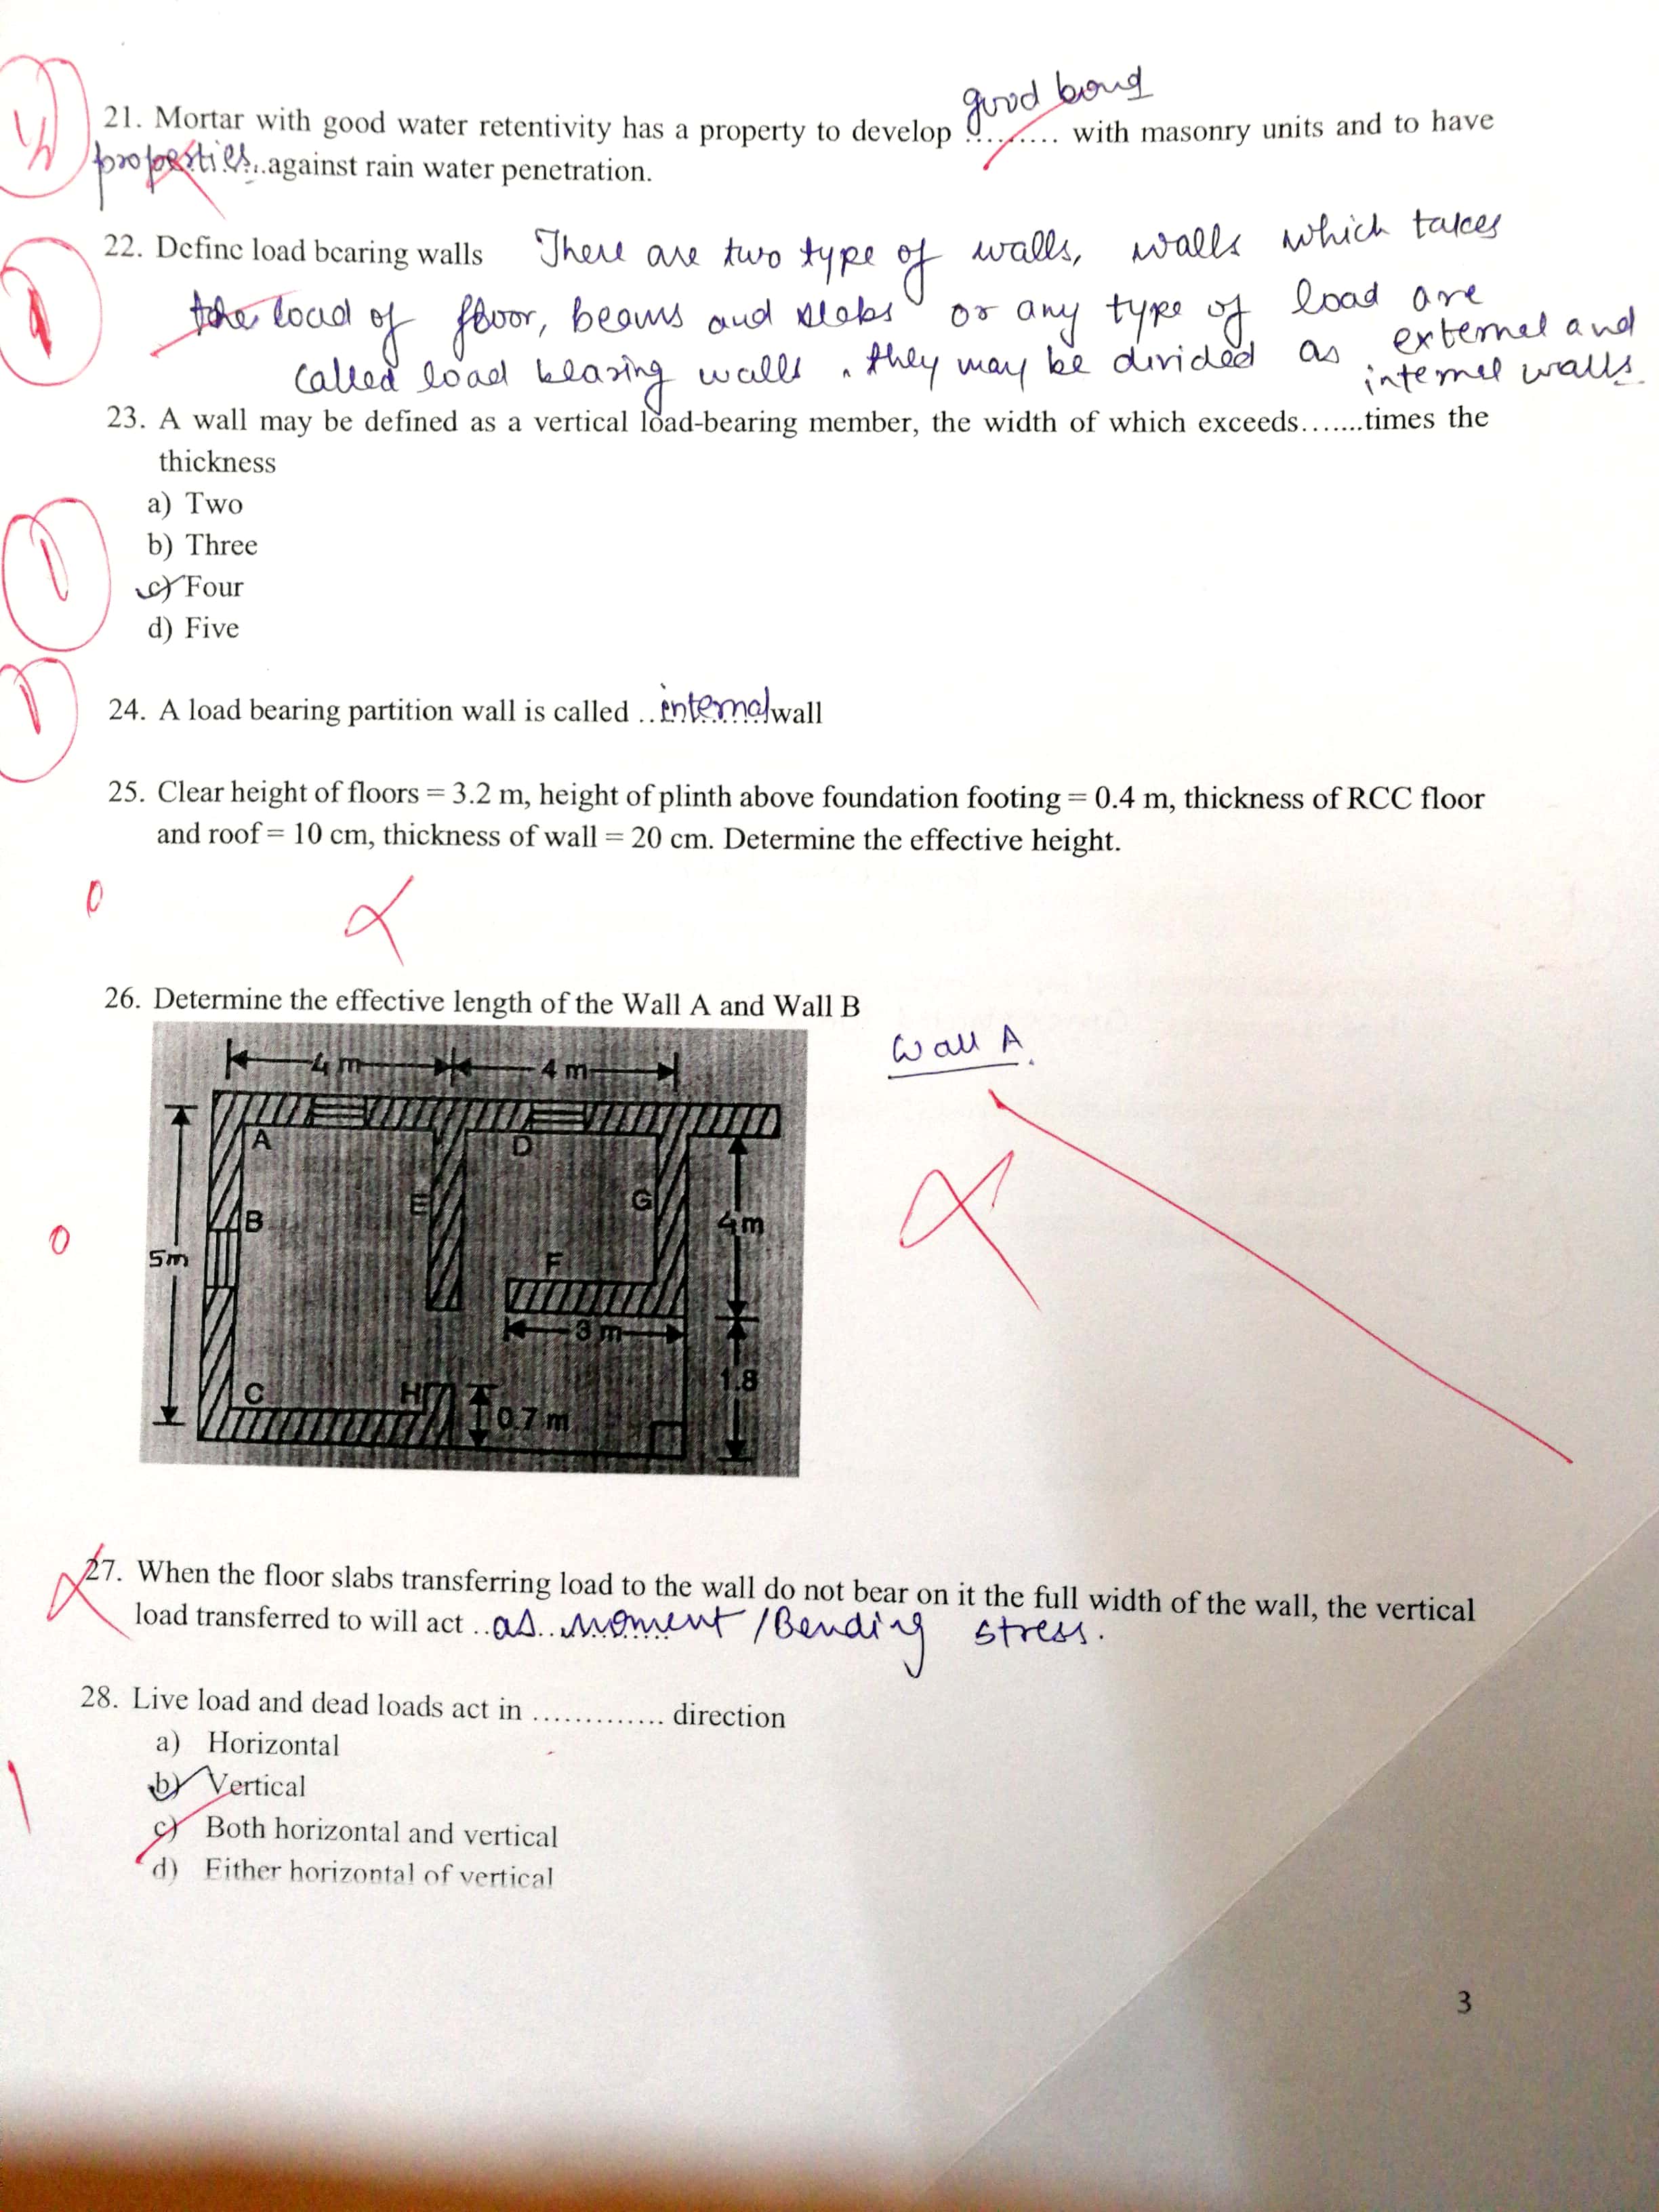 good bond
21. Mortar with good water retentivity has a property to develop ......... with masonry units and to have
properties...against rain water penetration.
22. Define load bearing walls There are two type of walls, walls which takes
the load of floor, beams and slabs or any type of load are
called load bearing walls. they may be divided as external and
internel walls.
23. A wall may be defined as a vertical load-bearing member, the width of which exceeds.......times the
thickness
a) Two
b) Three
c) Four
d) Five
24. A load bearing partition wall is called ..internal wall
25. Clear height of floors = 3.2 m, height of plinth above foundation footing = 0.4 m, thickness of RCC floor
and roof = 10 cm, thickness of wall = 20 cm. Determine the effective height.
0
26. Determine the effective length of the Wall A and Wall B
Wall A
4 m 4 m
A D
B E G 4m
5m F
3 m
1.8
C H 0.7 m
0
27. When the floor slabs transferring load to the wall do not bear on it the full width of the wall, the vertical
load transferred to will act ..as..moment /Bending stress.
28. Live load and dead loads act in ............. direction
a) Horizontal
b) Vertical
1
c) Both horizontal and vertical
d) Either horizontal of vertical
3